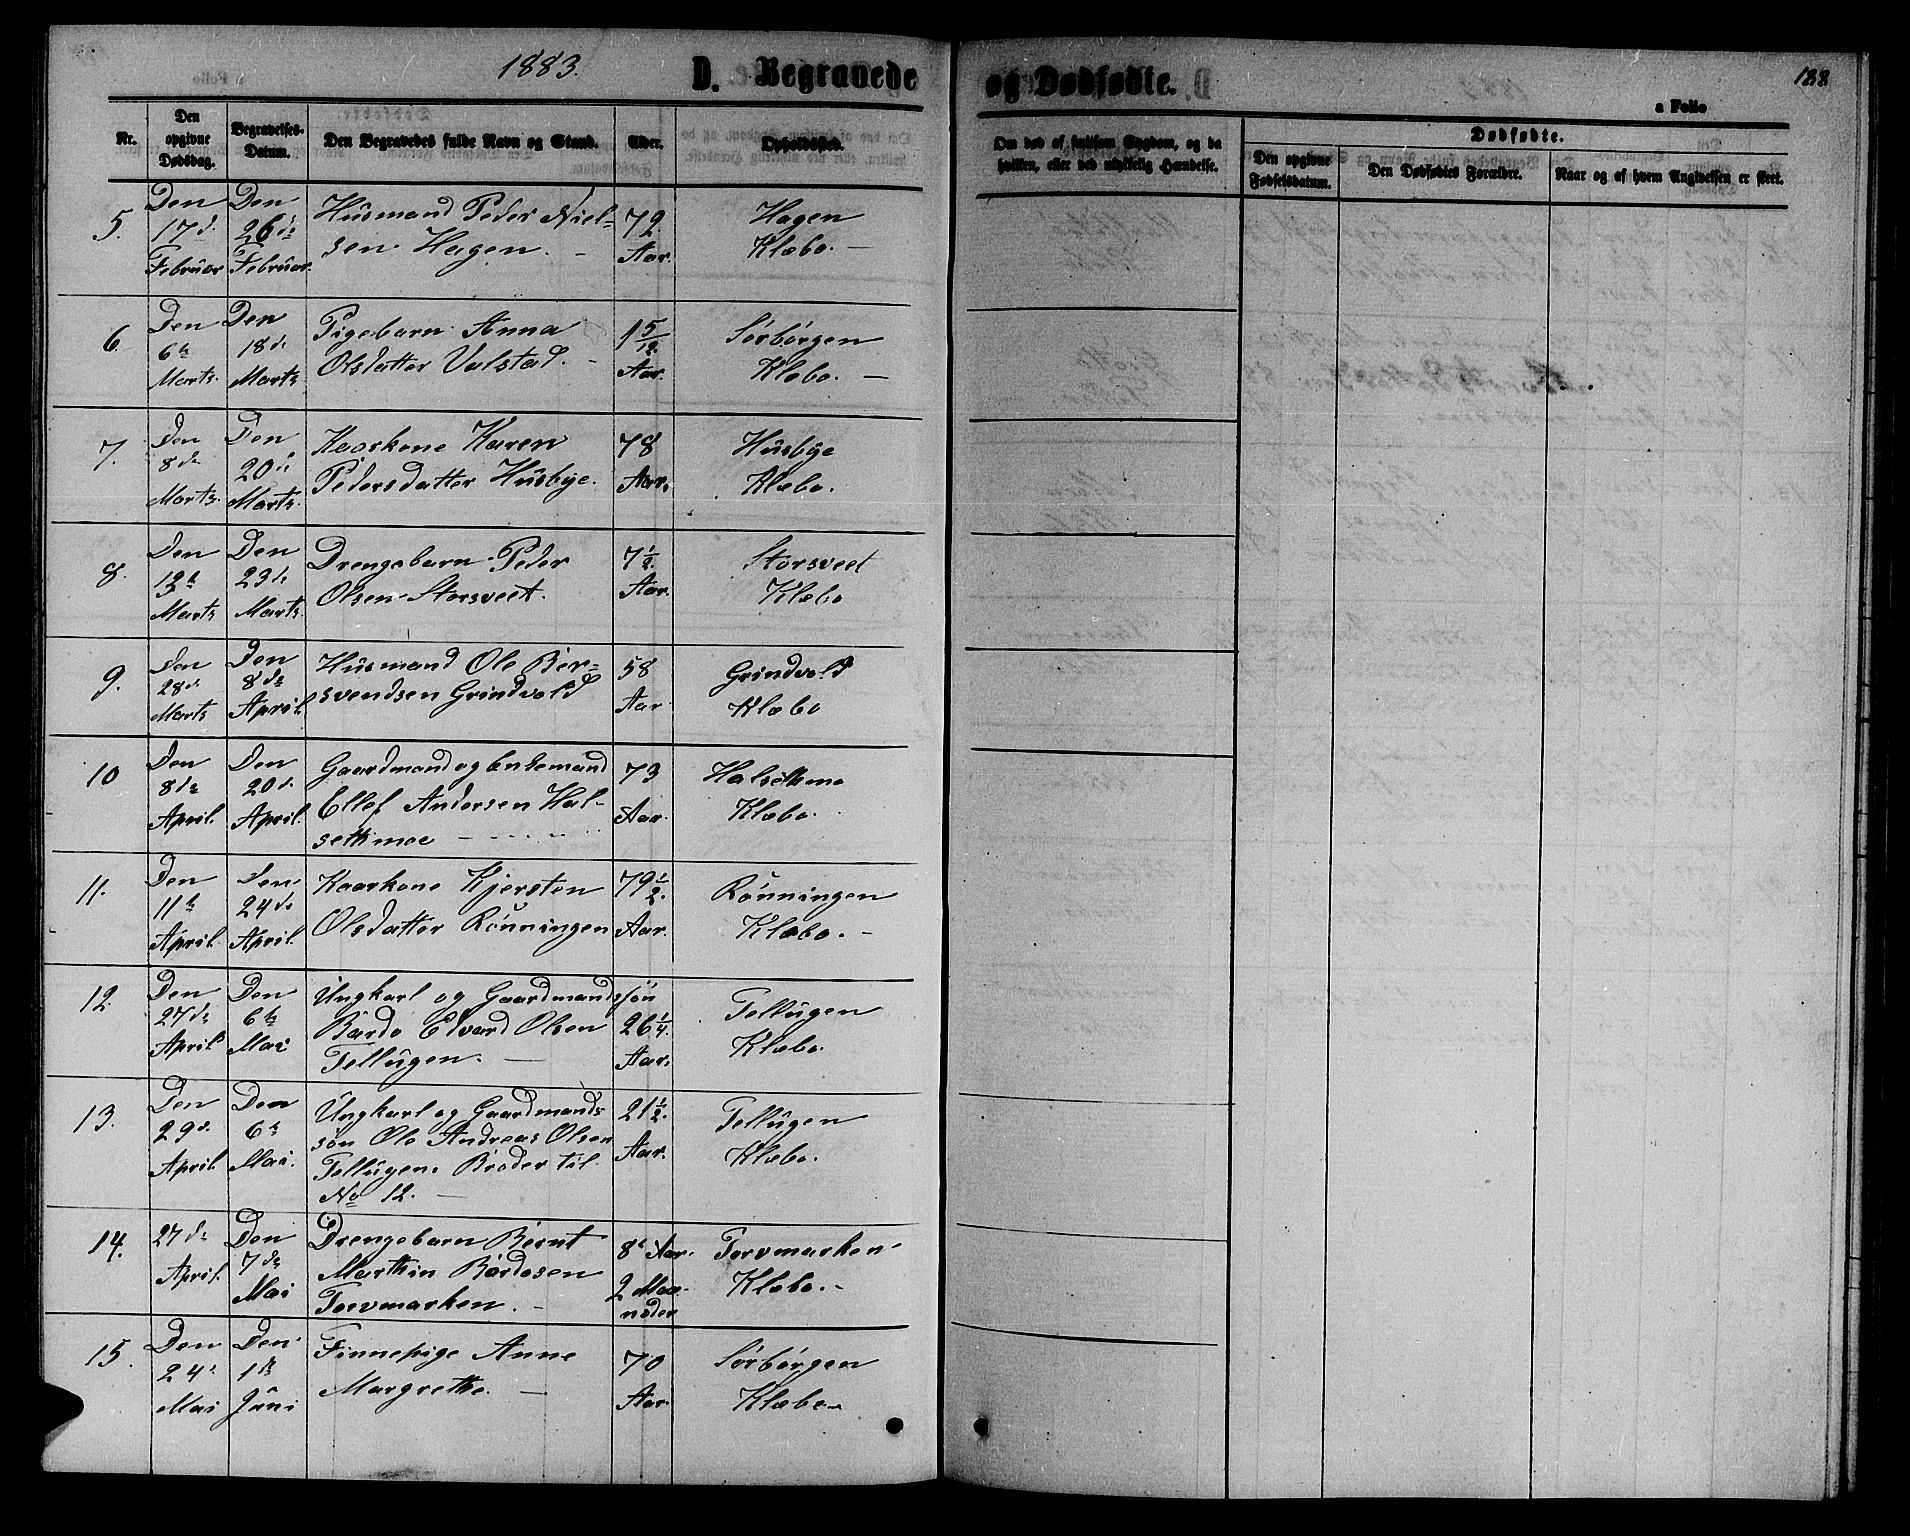 1883.
D. Begravede
og Dødfødte.
188
a Folio
Nr.
Den opgivne Dødsdag.
Begravelses-Datum.
Den Begravedes fulde Navn og Stand.
Alder.
Opholdssted.
Om død af smitsom Sygdom, og da
hvilken, eller ved ulykkelig Hændelse.
Dødfødte.
Den opgivne Fødselsdatum.
Den Dødfødtes Forældre.
Naar og af hvem Angivelsen er skeet.
5. Den Den Husmand Peder Niel- 72 Hagen
17d. 26de sen Hagen. - Aar. Klæbo. -
Februar Februar.
6. Den Den Pigebarn Anna 1 5/12 Sørborgen
6te 18de Olsdatter Valstad. - Aar. Klæbo. -
Marts. Marts
7. Den Den Kaarkone Karen 78 Husbye
8de 20de Pedersdatter Husbye. Aar. Klæbo.
Marts. Marts.
8. Den Den Drengebarn Peder 7 1/2. Storsveet
12te 23de Olsen Storsveet. Aar. Klæbo
Marts Marts.
9. Den Den Husmand Ole Ber- 58 Grindvold
28de 8de svendsen Grindvold Aar. Klæbo
Marts April.
10 Den Den Gaardmand og Enkemand 73 Halsetmo
8de 20de Ellef Andersen Hal- Aar. Klæbo.
April. April. setmoe -
11. Den Den Kaarkone Kjersten 79 1/2. Rønningen
11te 24de Olsdatter Rønningen Aar. Klæbo. -
April. April.
12. Den Den Ungkarl og Gaardmandssøn Tellugen
27de 6te Bardo Edvard Olsen 26 1/4. Klæbo.
April Mai Tellugen. - Aar.
13. Den Den Ungkarl og Gaardmands- 21 1/2. Tellugen
29de. 6te søn Ole Andreas Olsen Aar. Klæbo.
April Mai. Tellugen. Broder til
No 12. -
14. 27de Den Drengebarn Bernt 8 Aar. Torvmarken
April. 7de Marthin Bardosen 2 Maa- Klæbo. -
Mai Torvmarken. - neder
15. Den Den Finnepige Anne 70 Sørborgen
24de 1ste Margrethe. - Aar. Klæbo
Mai Juni